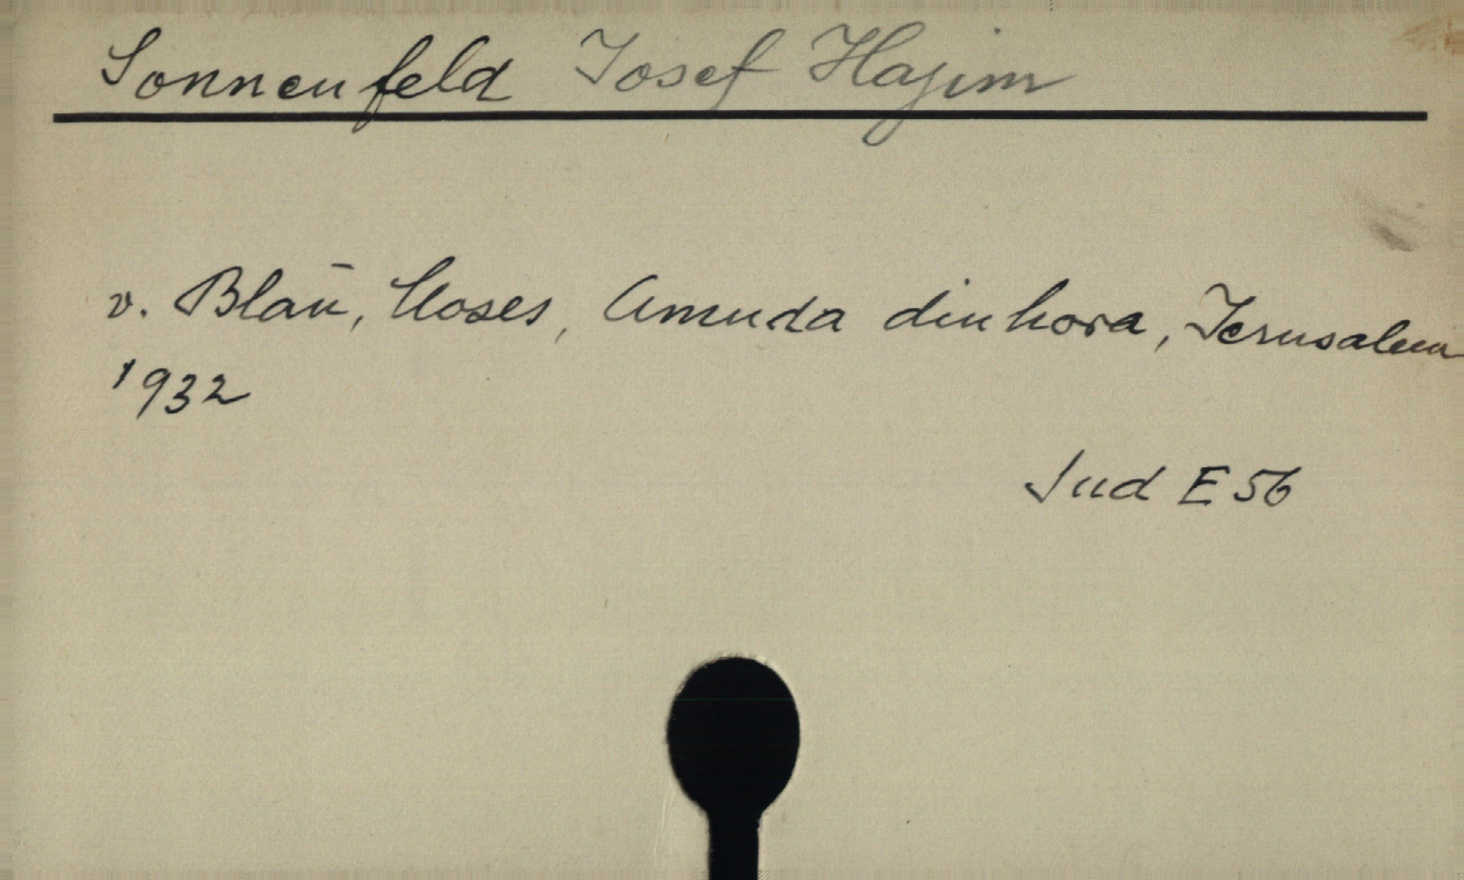 Sonnenfeld Josef Hajim
v. Blau, Moses, Amuda dinhora, Jerusalem
1932
Jud E 56